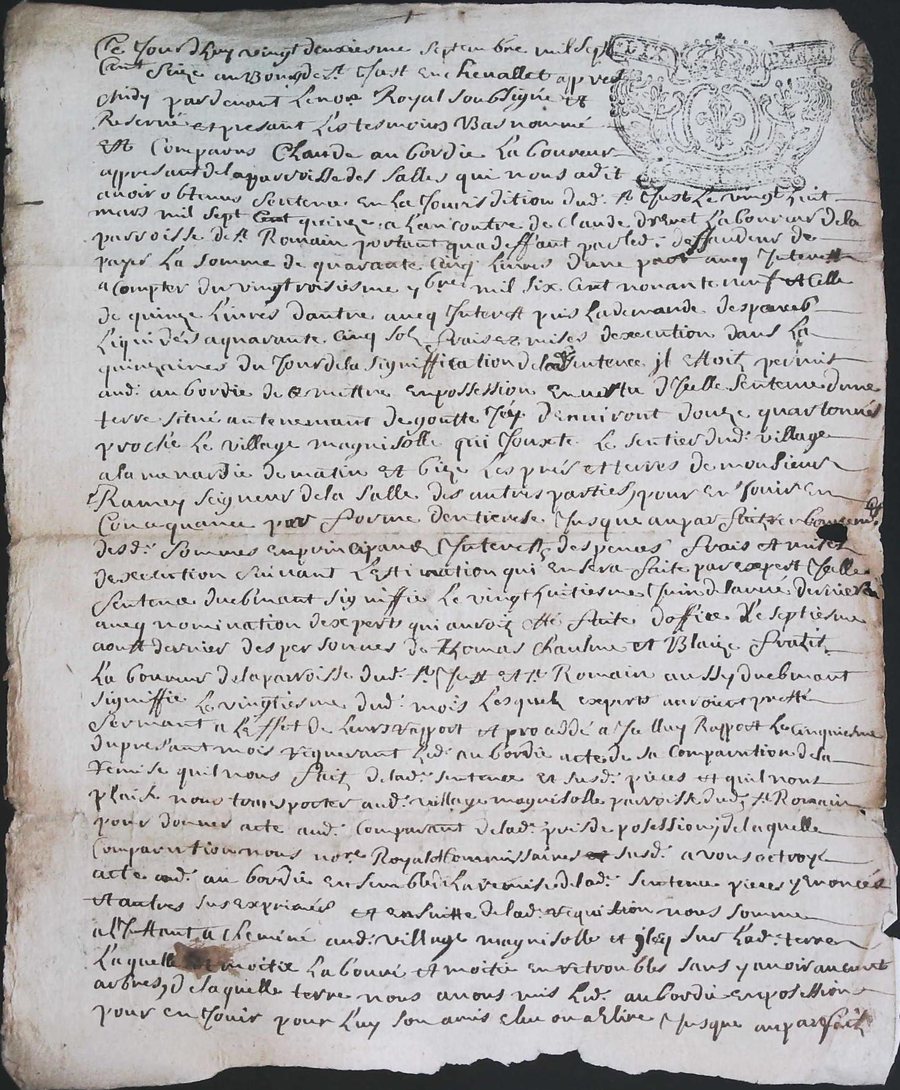 Ce Jourdhuy vingt deuxiesme septembre mil sept
Cent Seize au Bourg de St Just en Chevallet appres
midy pardevant Le nore Royal soubsigné et
Reservé et presant Les tesmoins Bas nommé
Est Comparus Claude aubordie Laboureur
appresant de la parroisse des Salles qui nous a dit
avoir obtenu Sentence en La Jourisdition dud. St Just Le vingt huit
mars mil sept Cent quinze a Lancontre de Claude Drevet Laboureur de la
parroisse de St Romain portant qua deffaut par led. deffandeur de
payé La Somme de quarante Cinq Livres dune part aveq Interest
a Compter du vingtroisiesme 9bre mil six Cent nonante neuf et Celle
de quinze Livres dautre aveq Interest puis La demande despences
Liquidés a quarante Cinq sols fraise mises dexecution dans La
quinzaines du Jour de la signiffication de lad. Sentence Jl estoit permit
aud. aubordie de se mettre en possession en vertu dJcelle Sentence dune
terre situé au tenemant de goutte Jos denviront douze quartonnés
proche Le village magnisolle qui Jouxte Le sentier dud. village
a la menardie de matin et bize Les prés et terres de monsieur
Ramey seigneur de la Salle des autres parties pour en Jouir en
Consequance par forme dentierese Jusque au parfait remboursemt.
desd. sommes en principaux Interest despences frais et mises
dexecution suivant Lestimation qui en sera faite par expert Jcelle
Sentence duebmant signiffié Le vingt huitiesme Juin de lanné derniere
aveq nomination dexperts qui auroit esté faite doffice Le septiesme
aoust dernier des personnes de Thomas Chaulme et Blaize fratit
Laboureur de la parroisse dud. St Just et St Romain aussy duebmant
signiffié Le vingtiesme dud. mois Lesquels experts auroient presté
Sermant a Leffet de Leurs rapport et proceddé a Jcelluy Rapport Le cinquiesme
du presant mois requerant Led. aubordie acte de sa Comparution de la
remise quil nous fait de lad. sentence et susd. pieces et quil nous
plaise nous transporter aud. village magnisolle parroisse dud. St Romain
pour donner acte aud. Comparant de lad. prise de posession de laquelle
Comparution nous nore Royal Commissaires et susd. avons octroyé
acte aud. aubordie ensemble de La remise de lad. Sentence pieces y enoncés
et autres sus exprimés et ensuitte de lad. requisition nous somme
a lInstant acheminé aud. village magnisolle et Jlecq sur Lad. terre
Laquelle est moitié Labouré et moitié en retroubles sans y avoir aucunt
arbres, de laquelle terre nous avons mis Led. aubordie en posession
pour en Jouir pour Luy son amis eslu ou a Eslire Jusque au parfait